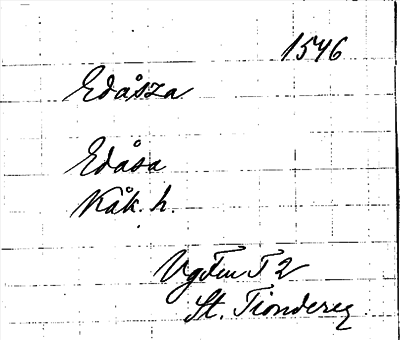 1546
Edåsza
Edåsa
Kåk. h.
Vgöten T 2
St. Tiondereg